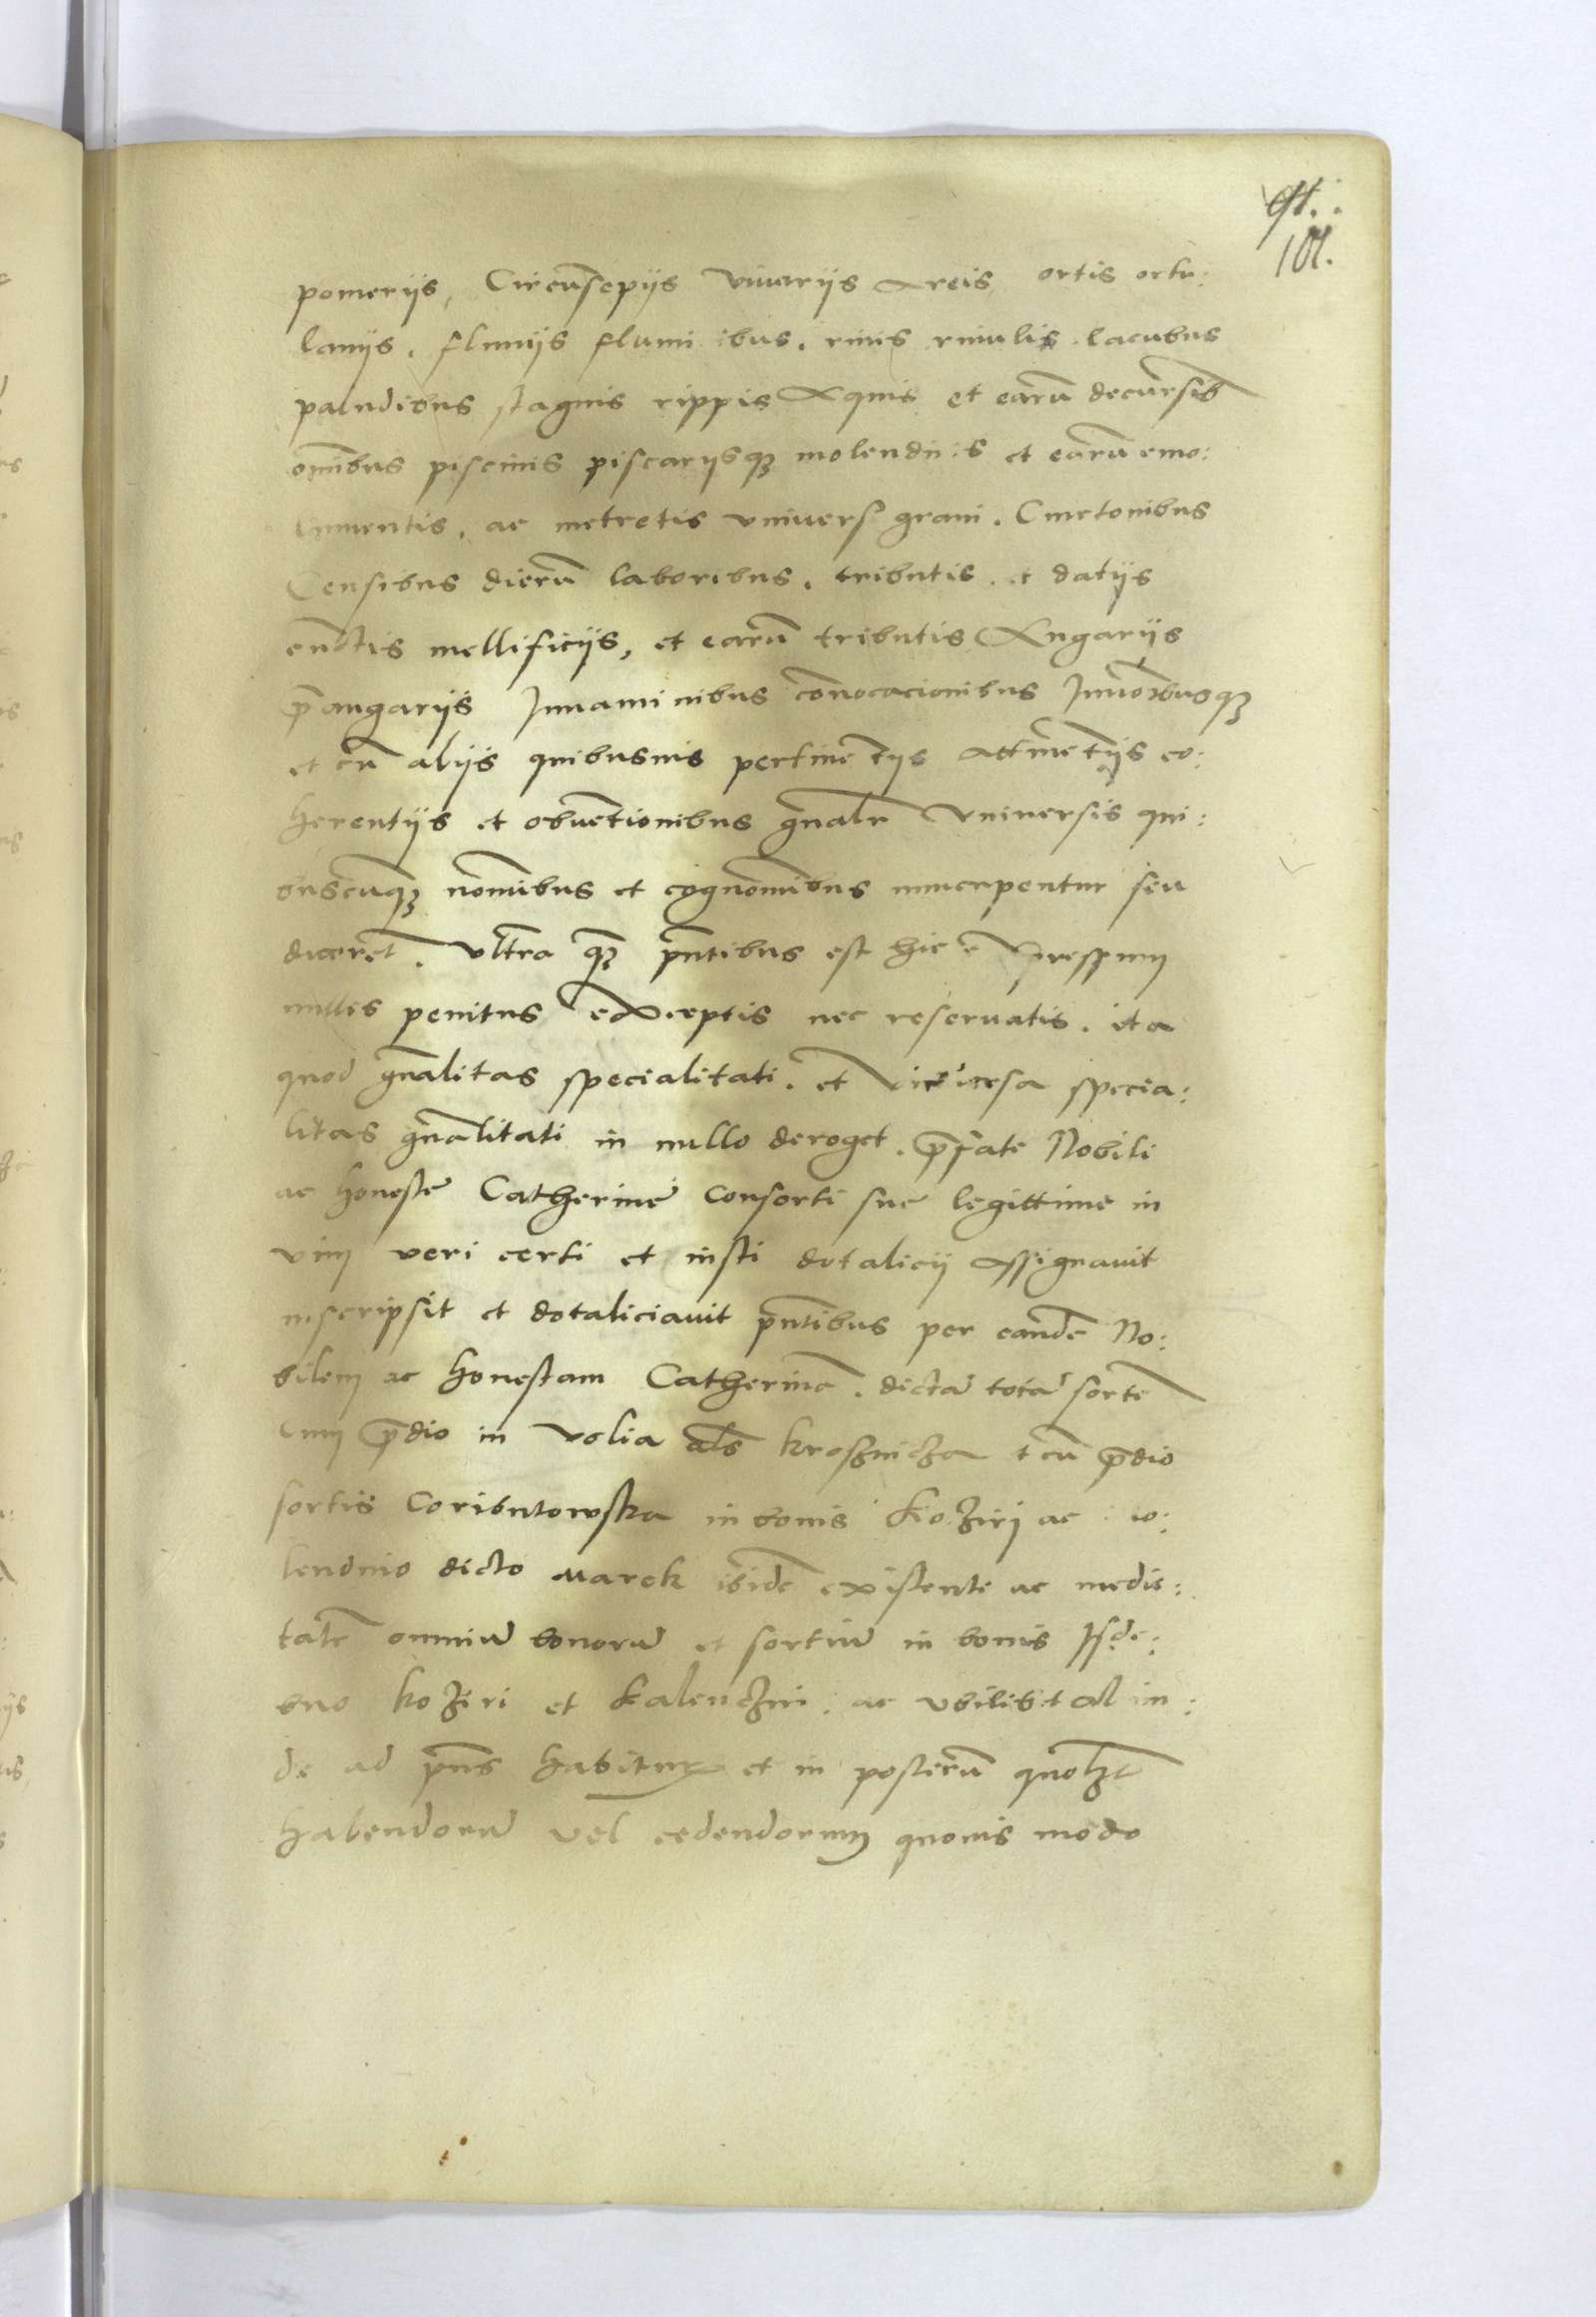 91.
101.
pomeriis, Circūsepijs viuariis Areis ortis ortu:
lanijs. fluuijs flumi ibus. riuis riuulis lacubus
paludibus stagnis rippis Aquis et earū decursib
omībus piscinis piscarijsqꝫ molendi s et earū emo:
lumentis, ac metretis vniuers grani. Cmetonibus
Censibus dierū laboribus. tributis. et datijs
cūctis mellificijs, et earū tributis Angarijs
p̄angarijs Juuaminibus cōuocacionibus
et cū alijs quibusuis pertinētijs Attinētijs co:
herentijs et obuētionibus gn̄alr vniuersis qui:
buscūqꝫ nomībus et cognomībus nuncupentur seu
dicerēt. vltra qꝫ pn̄tibus est hic expressum
nulles penitus exceptis nec reseruatis. ita
quod gn̄alitas specialitati. et viceuersa specia:
litas gn̄alitati in nullo deroget. p̄fate Nobili
ac honeste Catherine consorti sue legittime in
vim veri certi et iusti dotalicij Assignauit
inscripsit et dotaliciauit pn̄tibus per eandē No:
bilem ac honestam Catherinā. dictā totā sortē
cum p̄dio in volia als̄ kroszniczа t cū p̄dio
sortis Coributowska in bonis Koziri ac o:
lendino dicto Marek ibidē existente ac medie:
tatē omniū bonorū et sortiū in bonis
bno koziri et kalenczini. ac vbilibet al in:
de ad pn̄s habitur et in posterū quolꝫt
habendorū vel cedendorum quouis modo